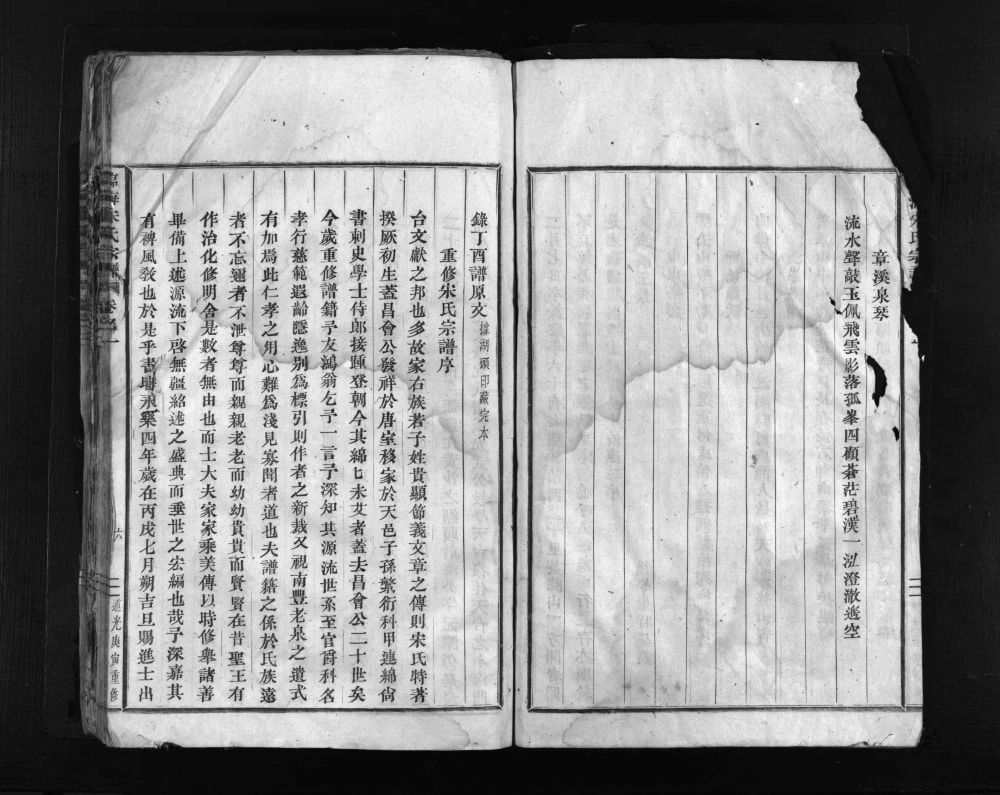 章溪泉琴
流水聲敲玉佩飛雲影落孤峯四顧蒼茫碧漢一泓澄澈遙空
錄丁酉譜原文 據湖頭印藏完本
重修宋氏宗譜序
台文獻之邦也多故家右族若子姓貴顯節義文章之傳則宋氏特著
揆厥初生蓋昌會公發祥於唐室移家於天邑子孫繁衍科甲連綿尚
書刺史學士侍郎接踵登朝今其綿匕未艾者蓋去昌會公二十世矣
今歲重修譜籍予友鴻翁乞予一言予深知其源流世系至官爵科名
孝行慈範遐齡隱逸別爲標引則作者之新裁又視南豐老泉之遺式
有加焉此仁孝之用心難爲淺見寡聞者道也夫譜籍之係於氏族遠
者不忘邇者不泄尊尊而親親老老而幼幼貴貴而賢賢在昔聖王有
作治化修明舍是數者無由也而士大夫家家乘美傳以時修舉諸善
畢備上遡源流下啓無疆紹述之盛典而垂世之宏編也哉予深嘉其
有裨風敎也於是乎書時永樂四年歲在丙戌七月朔吉旦賜進士出
臨海宋氏宗譜 卷之一
六
道光庚寅重修